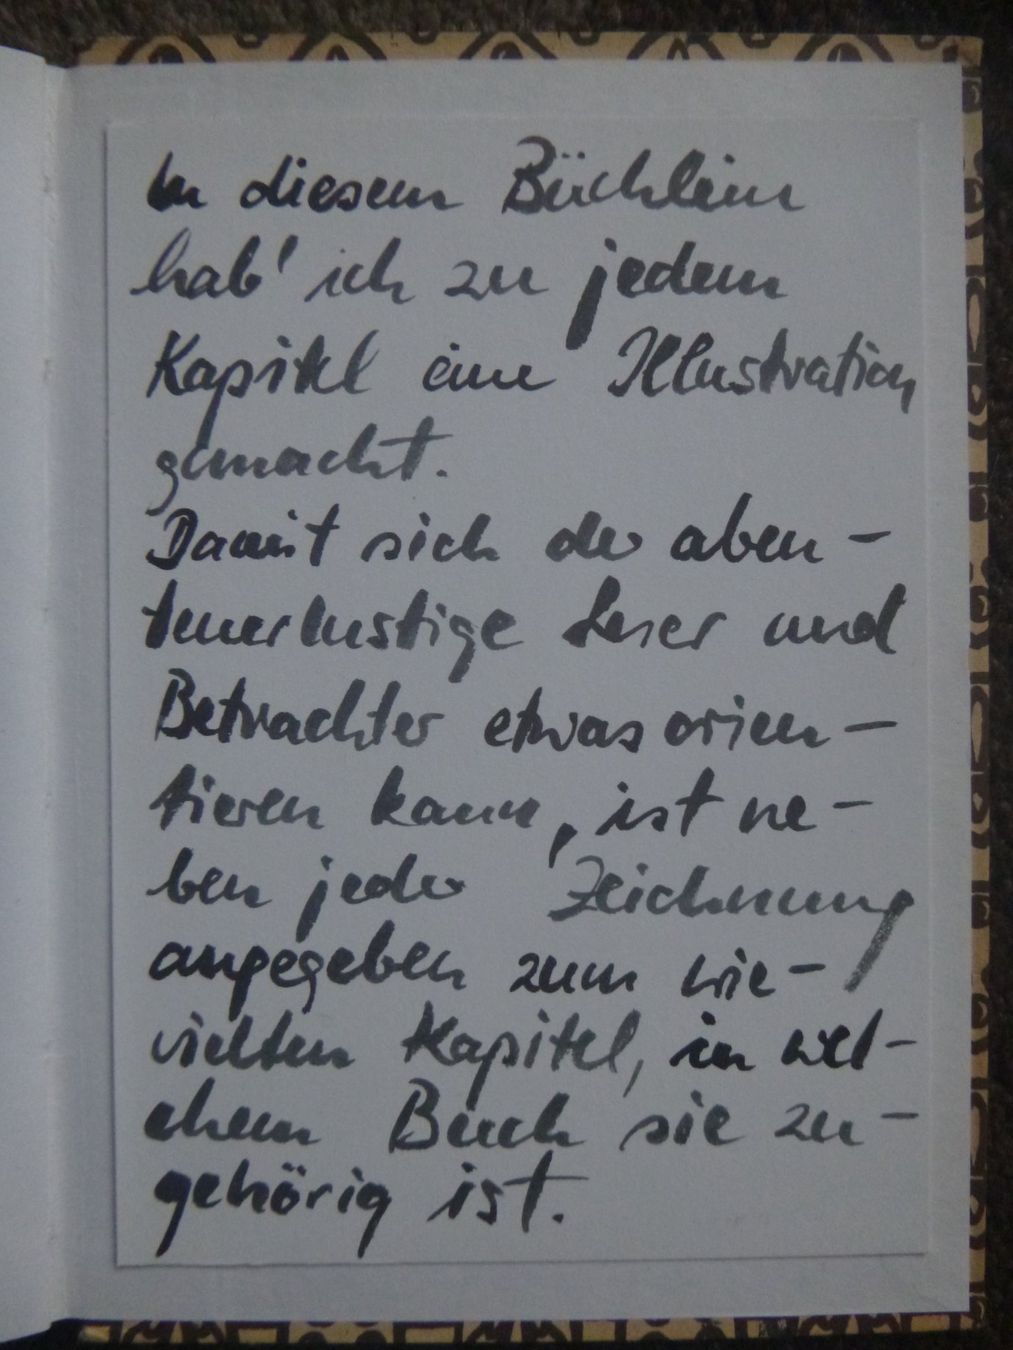 In diesem Büchlein
hab' ich zu jedem
Kapitel eine Illustration
gemacht.
Damit sich der aben-
teuerlustige Leser und
Betrachter etwas orien-
tieren kann, ist ne-
ben jeder Zeichnung
angegeben zum wie-
vielten Kapitel, in wel-
chem Buch sie zu-
gehörig ist.